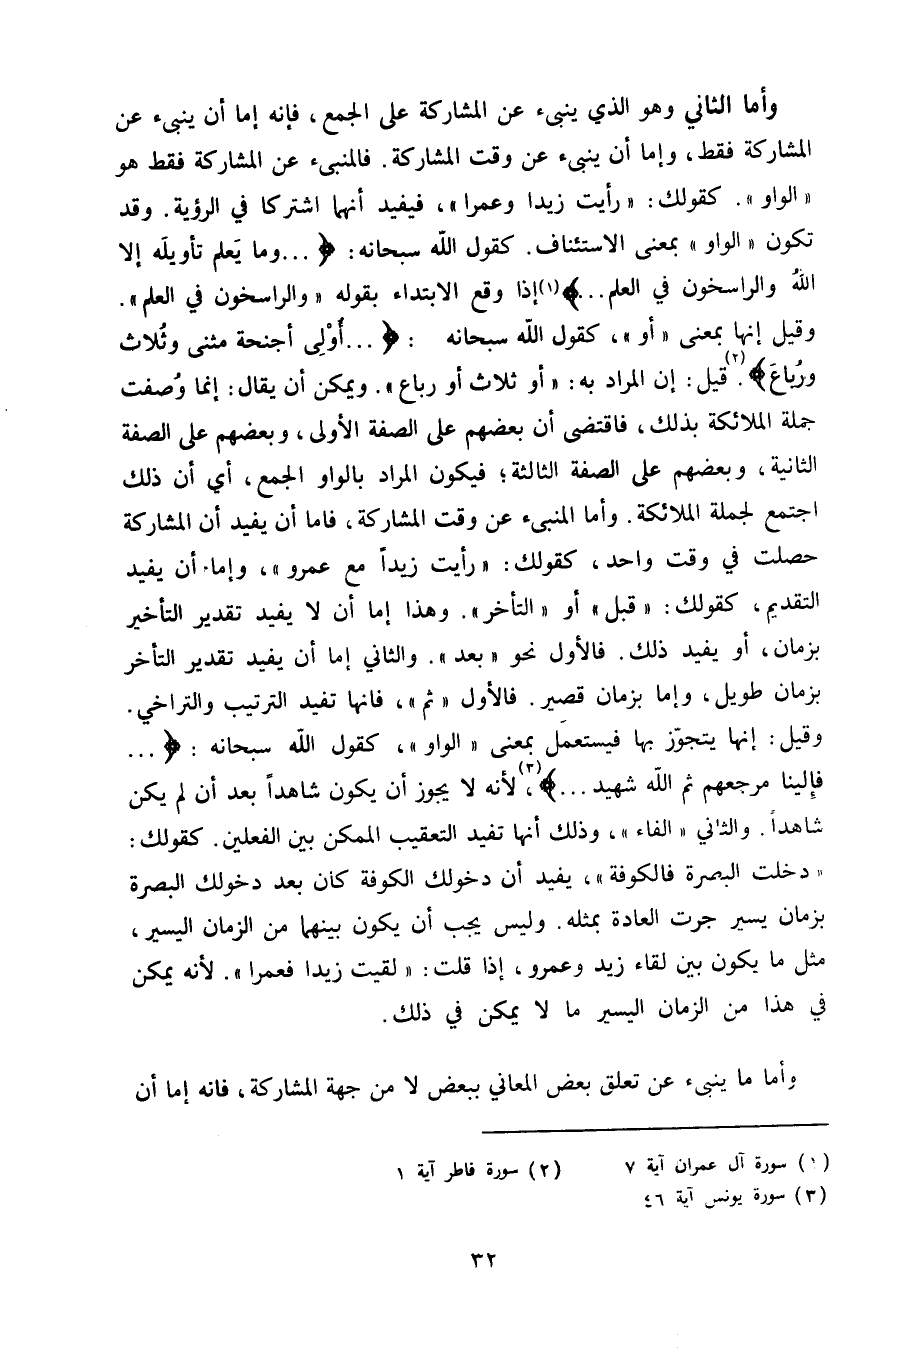 وأما الثاني وهو الذي ينبىء عن المشاركة على الجمع، فإنه إما أن ينبىء عن
المشاركة فقط، وإما أن ينبىء عن وقت المشاركة. فالمنبىء عن المشاركة فقط هو
«الواو». كقولك: «رأيت زيدا وعمرا»، فيفيد أنهما اشتركا في الرؤية. وقد
تكون «الواو» بمعنى الاستئناف. كقول اللّه سبحانه: ﴿...وما يَعلم تأويلَه إلا
اللّهُ والراسخون في العلم...﴾(١)إذا وقع الابتداء بقوله «والراسخون في العلم».
وقيل إنها بمعنى «أو»، كقول اللّه سبحانه : ﴿...أُوْلِى أجنحة مثنى وثُلاث
ورُباعَ﴾(٢). قيل: إن المراد به: «أو ثلاث أو رباع». ويمكن أن يقال: إنما وُصفت
جملة الملائكة بذلك، فاقتضى أن بعضهم على الصفة الأولى، وبعضهم على الصفة
الثانية، وبعضهم على الصفة الثالثة؛ فيكون المراد بالواو الجمع، أي أن ذلك
اجتمع لجملة الملائكة. وأما المنبىء عن وقت المشاركة، فاما أن يفيد أن المشاركة
حصلت في وقت واحد، كقولك: «رأيت زيداً مع عمرو»، وإما أن يفيد
التقديم، كقولك: «قبل» أو «التأخر». وهذا إما أن لا يفيد تقدير التأخير
بزمان، أو يفيد ذلك. فالأول نحو «بعد». والثاني إما أن يفيد تقدير التأخر
بزمان طويل، وإما بزمان قصير. فالأول «ثم»، فانها تفيد الترتيب والتراخي.
وقيل: إنها يتجوّز بها فيستعمَل بمعنى «الواو»، كقول اللّه سبحانه : ﴿...
فإلينا مرجعهم ثم اللّه شهيد...﴾(٣)، لأنه لا يجوز أن يكون شاهداً بعد أن لم يكن
شاهداً. والثاني «الفاء»، وذلك أنها تفيد التعقيب الممكن بين الفعلين. كقولك:
«دخلت البصرة فالكوفة»، يفيد أن دخولك الكوفة كان بعد دخولك البصرة
بزمان يسير جرت العادة بمثله. وليس يجب أن يكون بينهما من الزمان اليسير،
مثل ما يكون بين لقاء زيد وعمرو، إذا قلت: «لقيت زيدا فعمرا». لأنه يمكن
في هذا من الزمان اليسير ما لا يمكن في ذلك.
وأما ما ينبىء عن تعلق بعض المعاني ببعض لا من جهة المشاركة، فانه إما أن
(١) سورة آل عمران آية ٧ (٢) سورة فاطر آية ١
(٣) سورة يونس آية ٤٦
٣٢